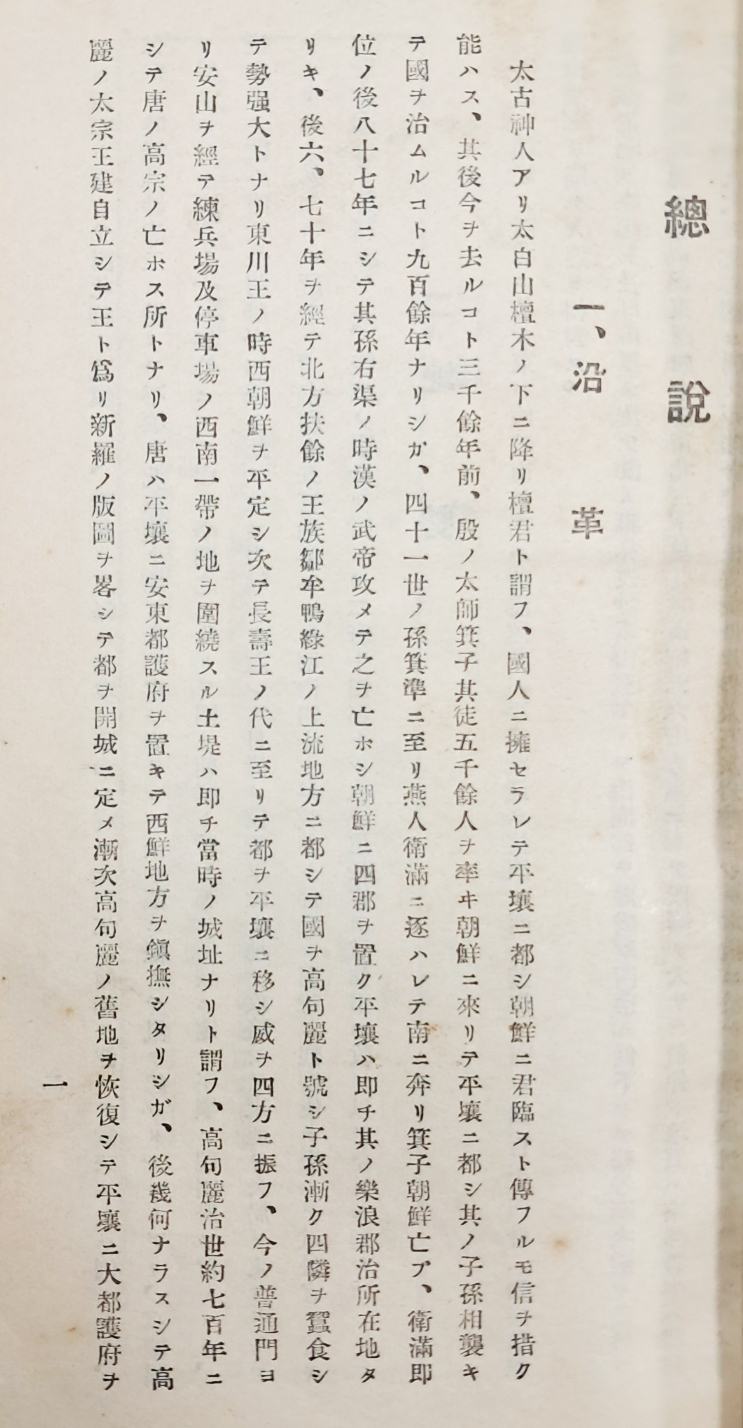 總說
一、沿革
太古神人アリ太白山檀木ノ下ニ降リ檀君ト謂フ、國人ニ擁セラレテ平壤ニ都シ朝鮮ニ君臨スト傳フルモ信ヲ措ク
能ハス、其後今ヲ去ルコト三千餘年前、殷ノ太師箕子其徒五千餘人ヲ率ヰ朝鮮ニ來リテ平壤ニ都シ其ノ子孫相襲キ
テ國ヲ治ムルコト九百餘年ナリシガ、四十一世ノ孫箕準ニ至リ燕人衛滿ニ逐ハレテ南ニ奔リ箕子朝鮮亡ブ、衛滿即
位ノ後八十七年ニシテ其孫右渠ノ時漢ノ武帝攻メテ之ヲ亡ホシ朝鮮ニ四郡ヲ置ク平壤ハ即チ其ノ樂浪郡治所在地タ
リキ、後六、七十年ヲ經テ北方扶餘ノ王族鄒牟鴨綠江ノ上流地方ニ都シテ國ヲ高句麗ト號シ子孫漸ク四隣ヲ蠶食シ
テ勢强大トナリ東川王ノ時西朝鮮ヲ平定シ次テ長壽王ノ代ニ至リテ都ヲ平壤ニ移シ威ヲ四方ニ振フ、今ノ普通門ヨ
リ安山ヲ經テ練兵場及停車場ノ西南一帶ノ地ヲ圍繞スル土堤ハ即チ當時ノ城址ナリト謂フ、高句麗治世約七百年ニ
シテ唐ノ高宗ノ亡ホス所トナリ、唐ハ平壤ニ安東都護府ヲ置キテ西鮮地方ヲ鎭撫シタリシガ、後幾何ナラスシテ高
麗ノ太宗王建自立シテ王ト爲リ新羅ノ版圖ヲ畧シテ都ヲ開城ニ定メ漸次高句麗ノ舊地ヲ恢復シテ平壤ニ大都護府ヲ
一